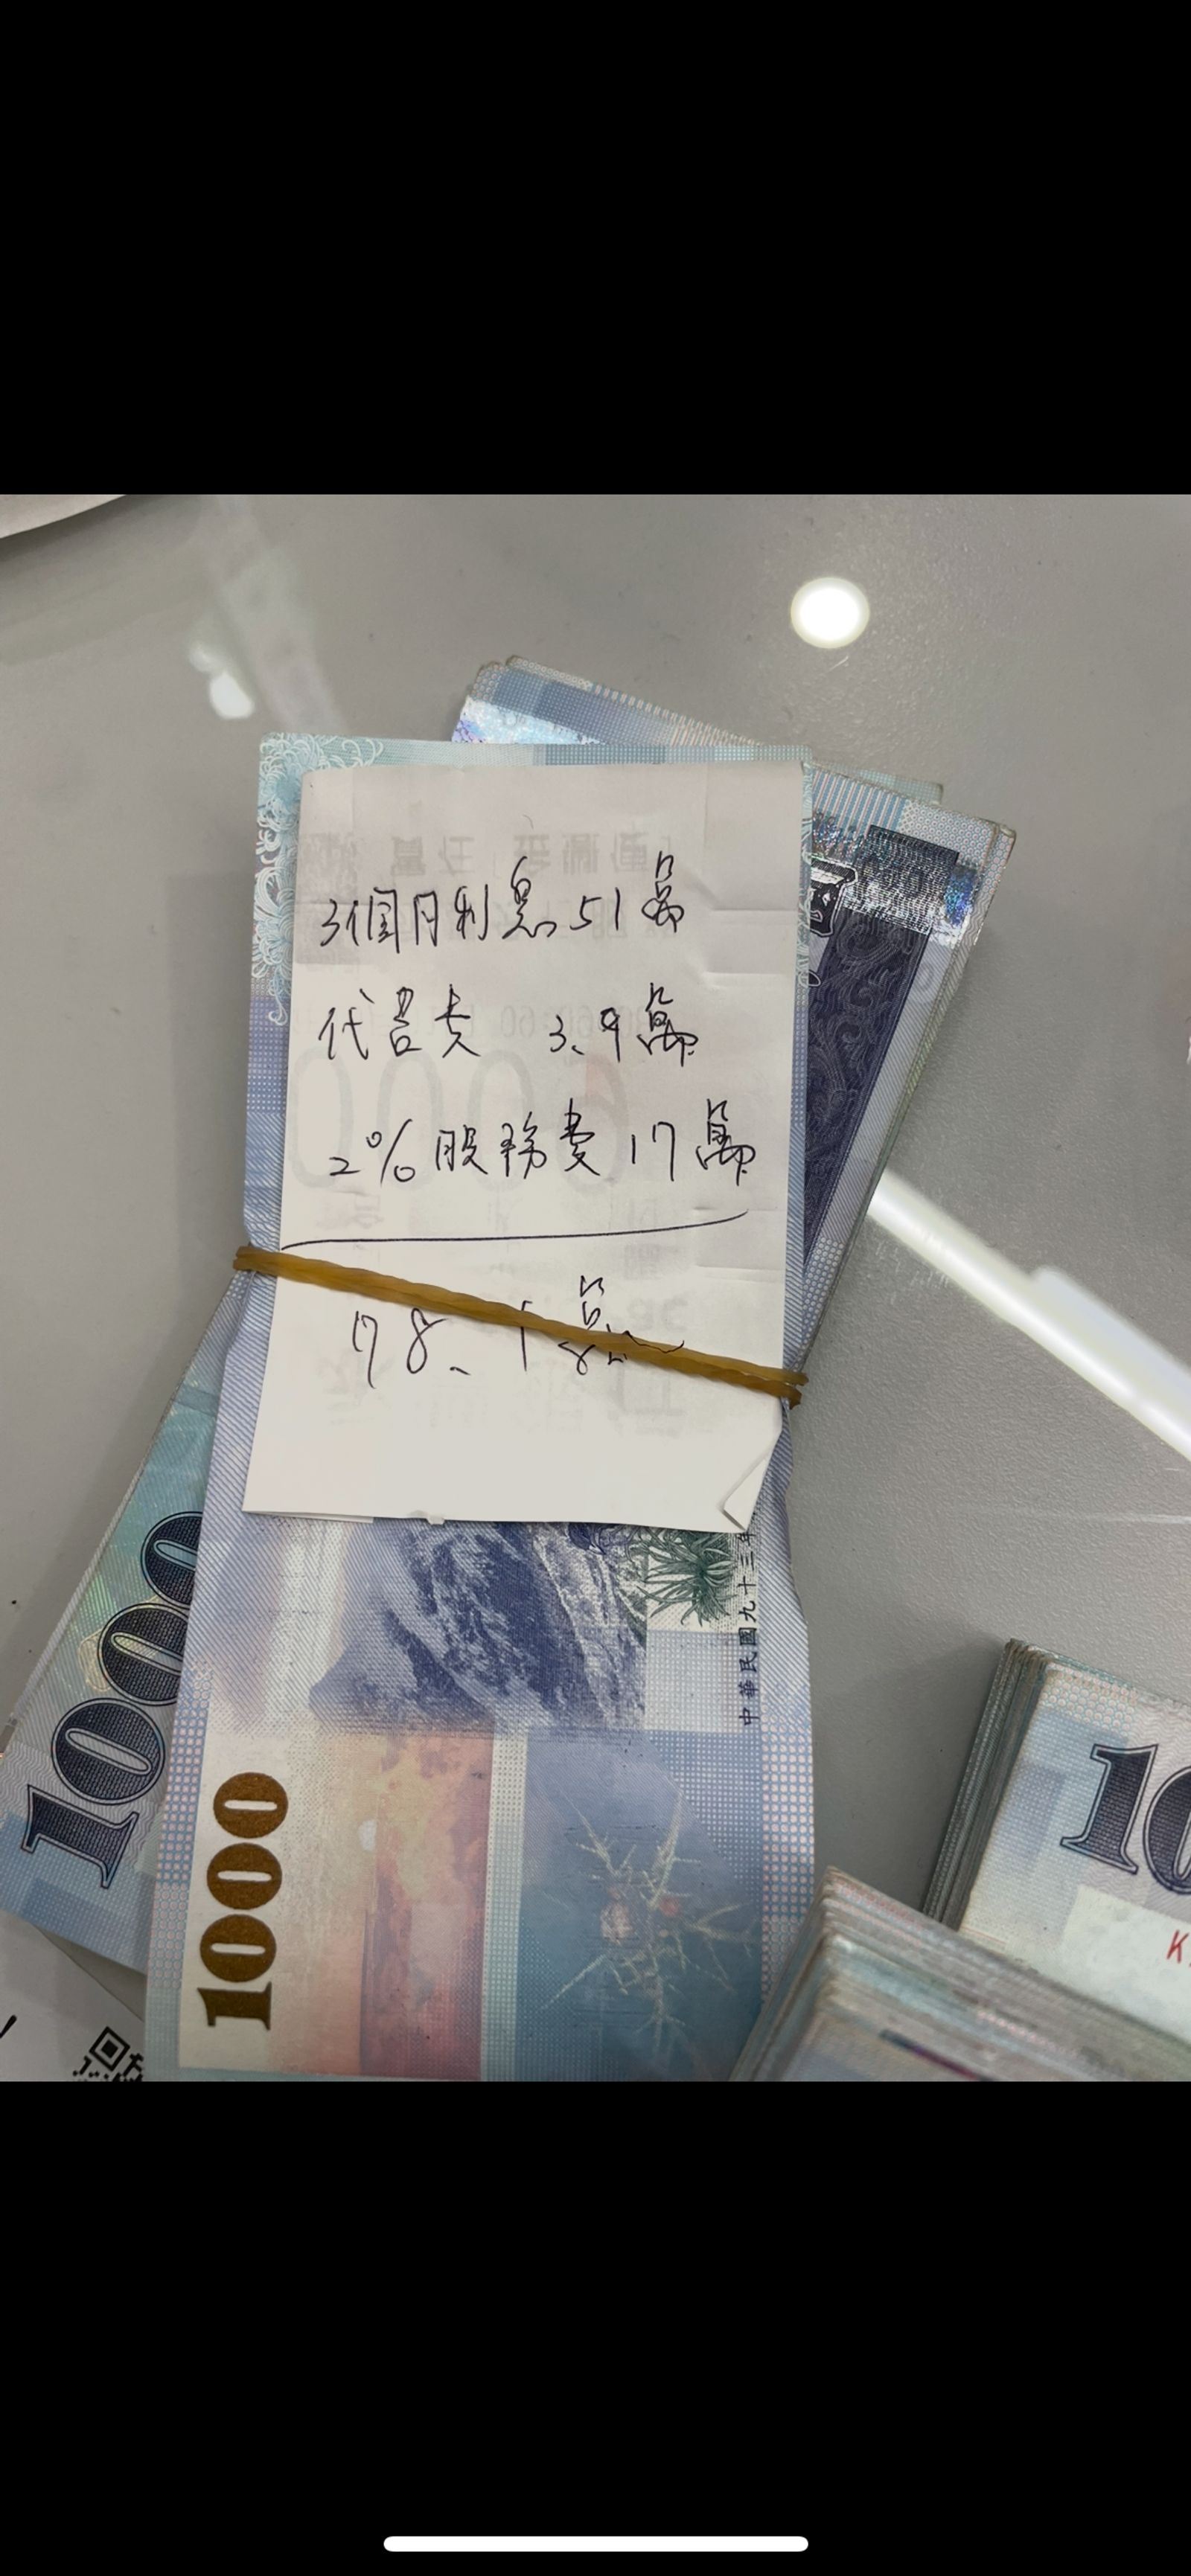 3個月利息51萬
代書費 3、9萬
2%服務費17萬
78、1萬
1000
1000
中華民國九十三年
10
K